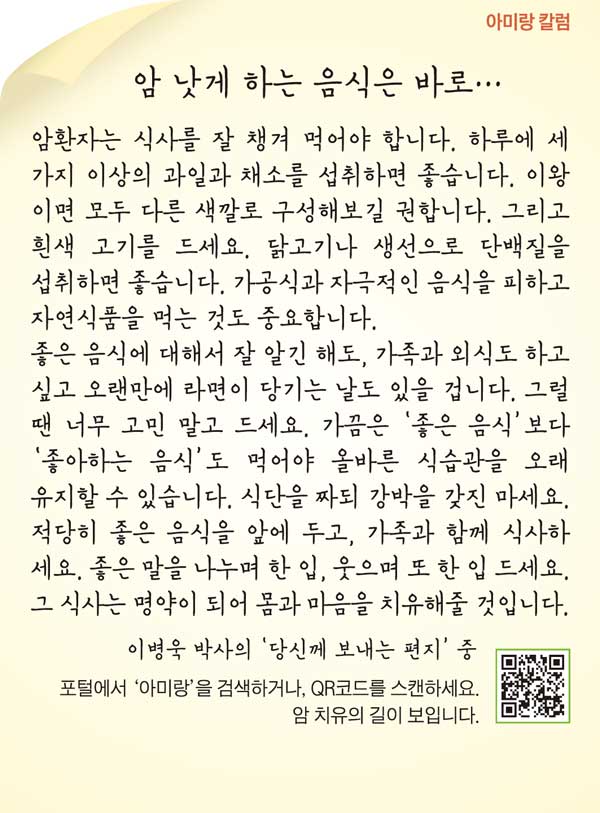 아미랑 칼럼
암 낫게 하는 음식은 바로…
암환자는 식사를 잘 챙겨 먹어야 합니다. 하루에 세
가지 이상의 과일과 채소를 섭취하면 좋습니다. 이왕
이면 모두 다른 색깔로 구성해보길 권합니다. 그리고
흰색 고기를 드세요. 닭고기나 생선으로 단백질을
섭취하면 좋습니다. 가공식과 자극적인 음식을 피하고
자연식품을 먹는 것도 중요합니다.
좋은 음식에 대해서 잘 알긴 해도, 가족과 외식도 하고
싶고 오랜만에 라면이 당기는 날도 있을 겁니다. 그럴
땐 너무 고민 말고 드세요. 가끔은 ‘좋은 음식’보다
‘좋아하는 음식’도 먹어야 올바른 식습관을 오래
유지할 수 있습니다. 식단을 짜되 강박을 갖진 마세요.
적당히 좋은 음식을 앞에 두고, 가족과 함께 식사하
세요. 좋은 말을 나누며 한 입, 웃으며 또 한 입 드세요.
그 식사는 명약이 되어 몸과 마음을 치유해줄 것입니다.
이병욱 박사의 ‘당신께 보내는 편지’ 중
포털에서 ‘아미랑’을 검색하거나, QR코드를 스캔하세요.
암 치유의 길이 보입니다.